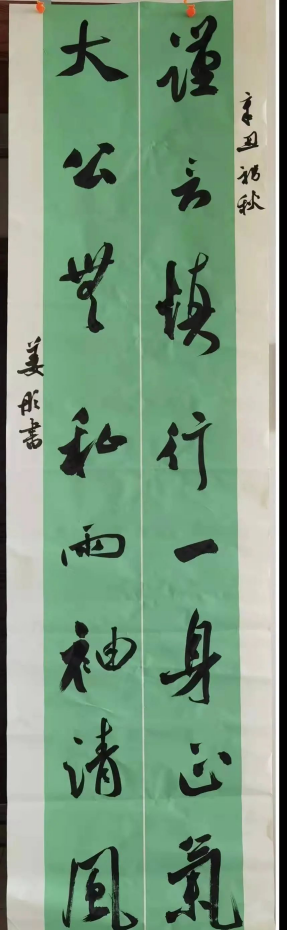 辛丑初秋
謹言慎行一身正氣
大公無私兩袖清風
姜彤書